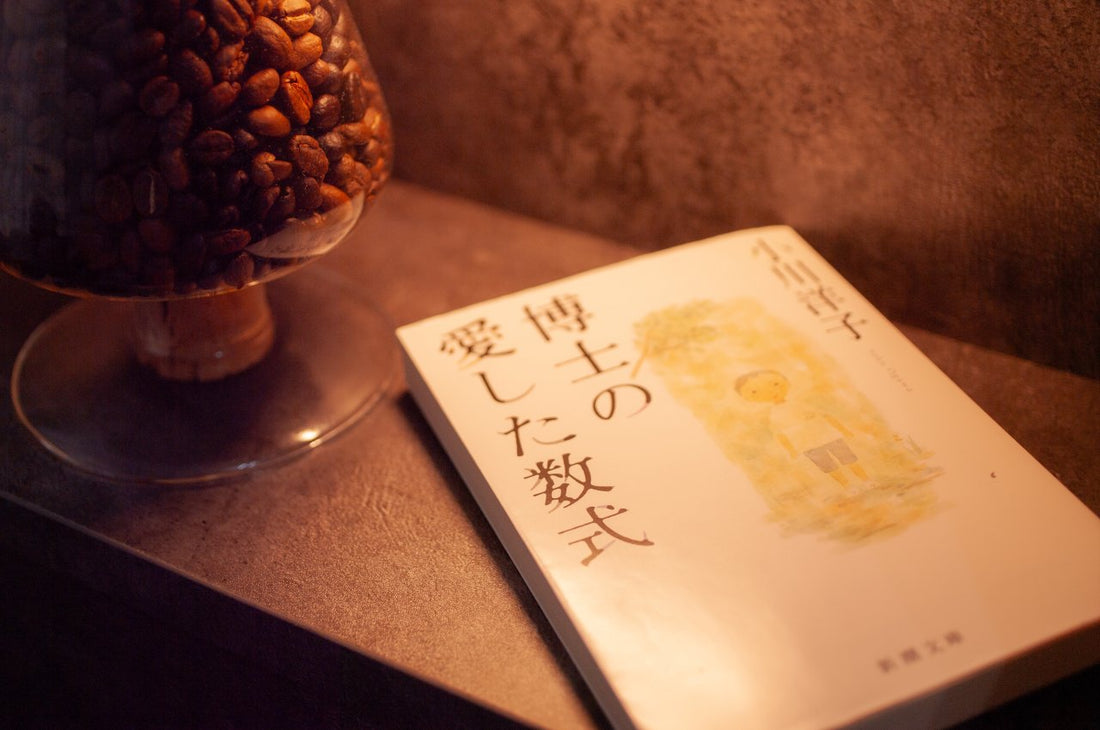 博士の
愛した数式
小川洋子
Yoko Ogawa
新潮文庫